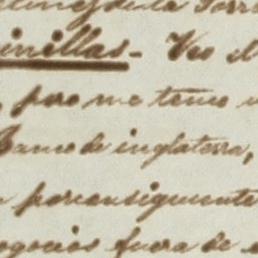 de la Torre
inillas - Veo el
, pero me temo
Banco de inglaterra,
porconsiguiente
negocios fuera de